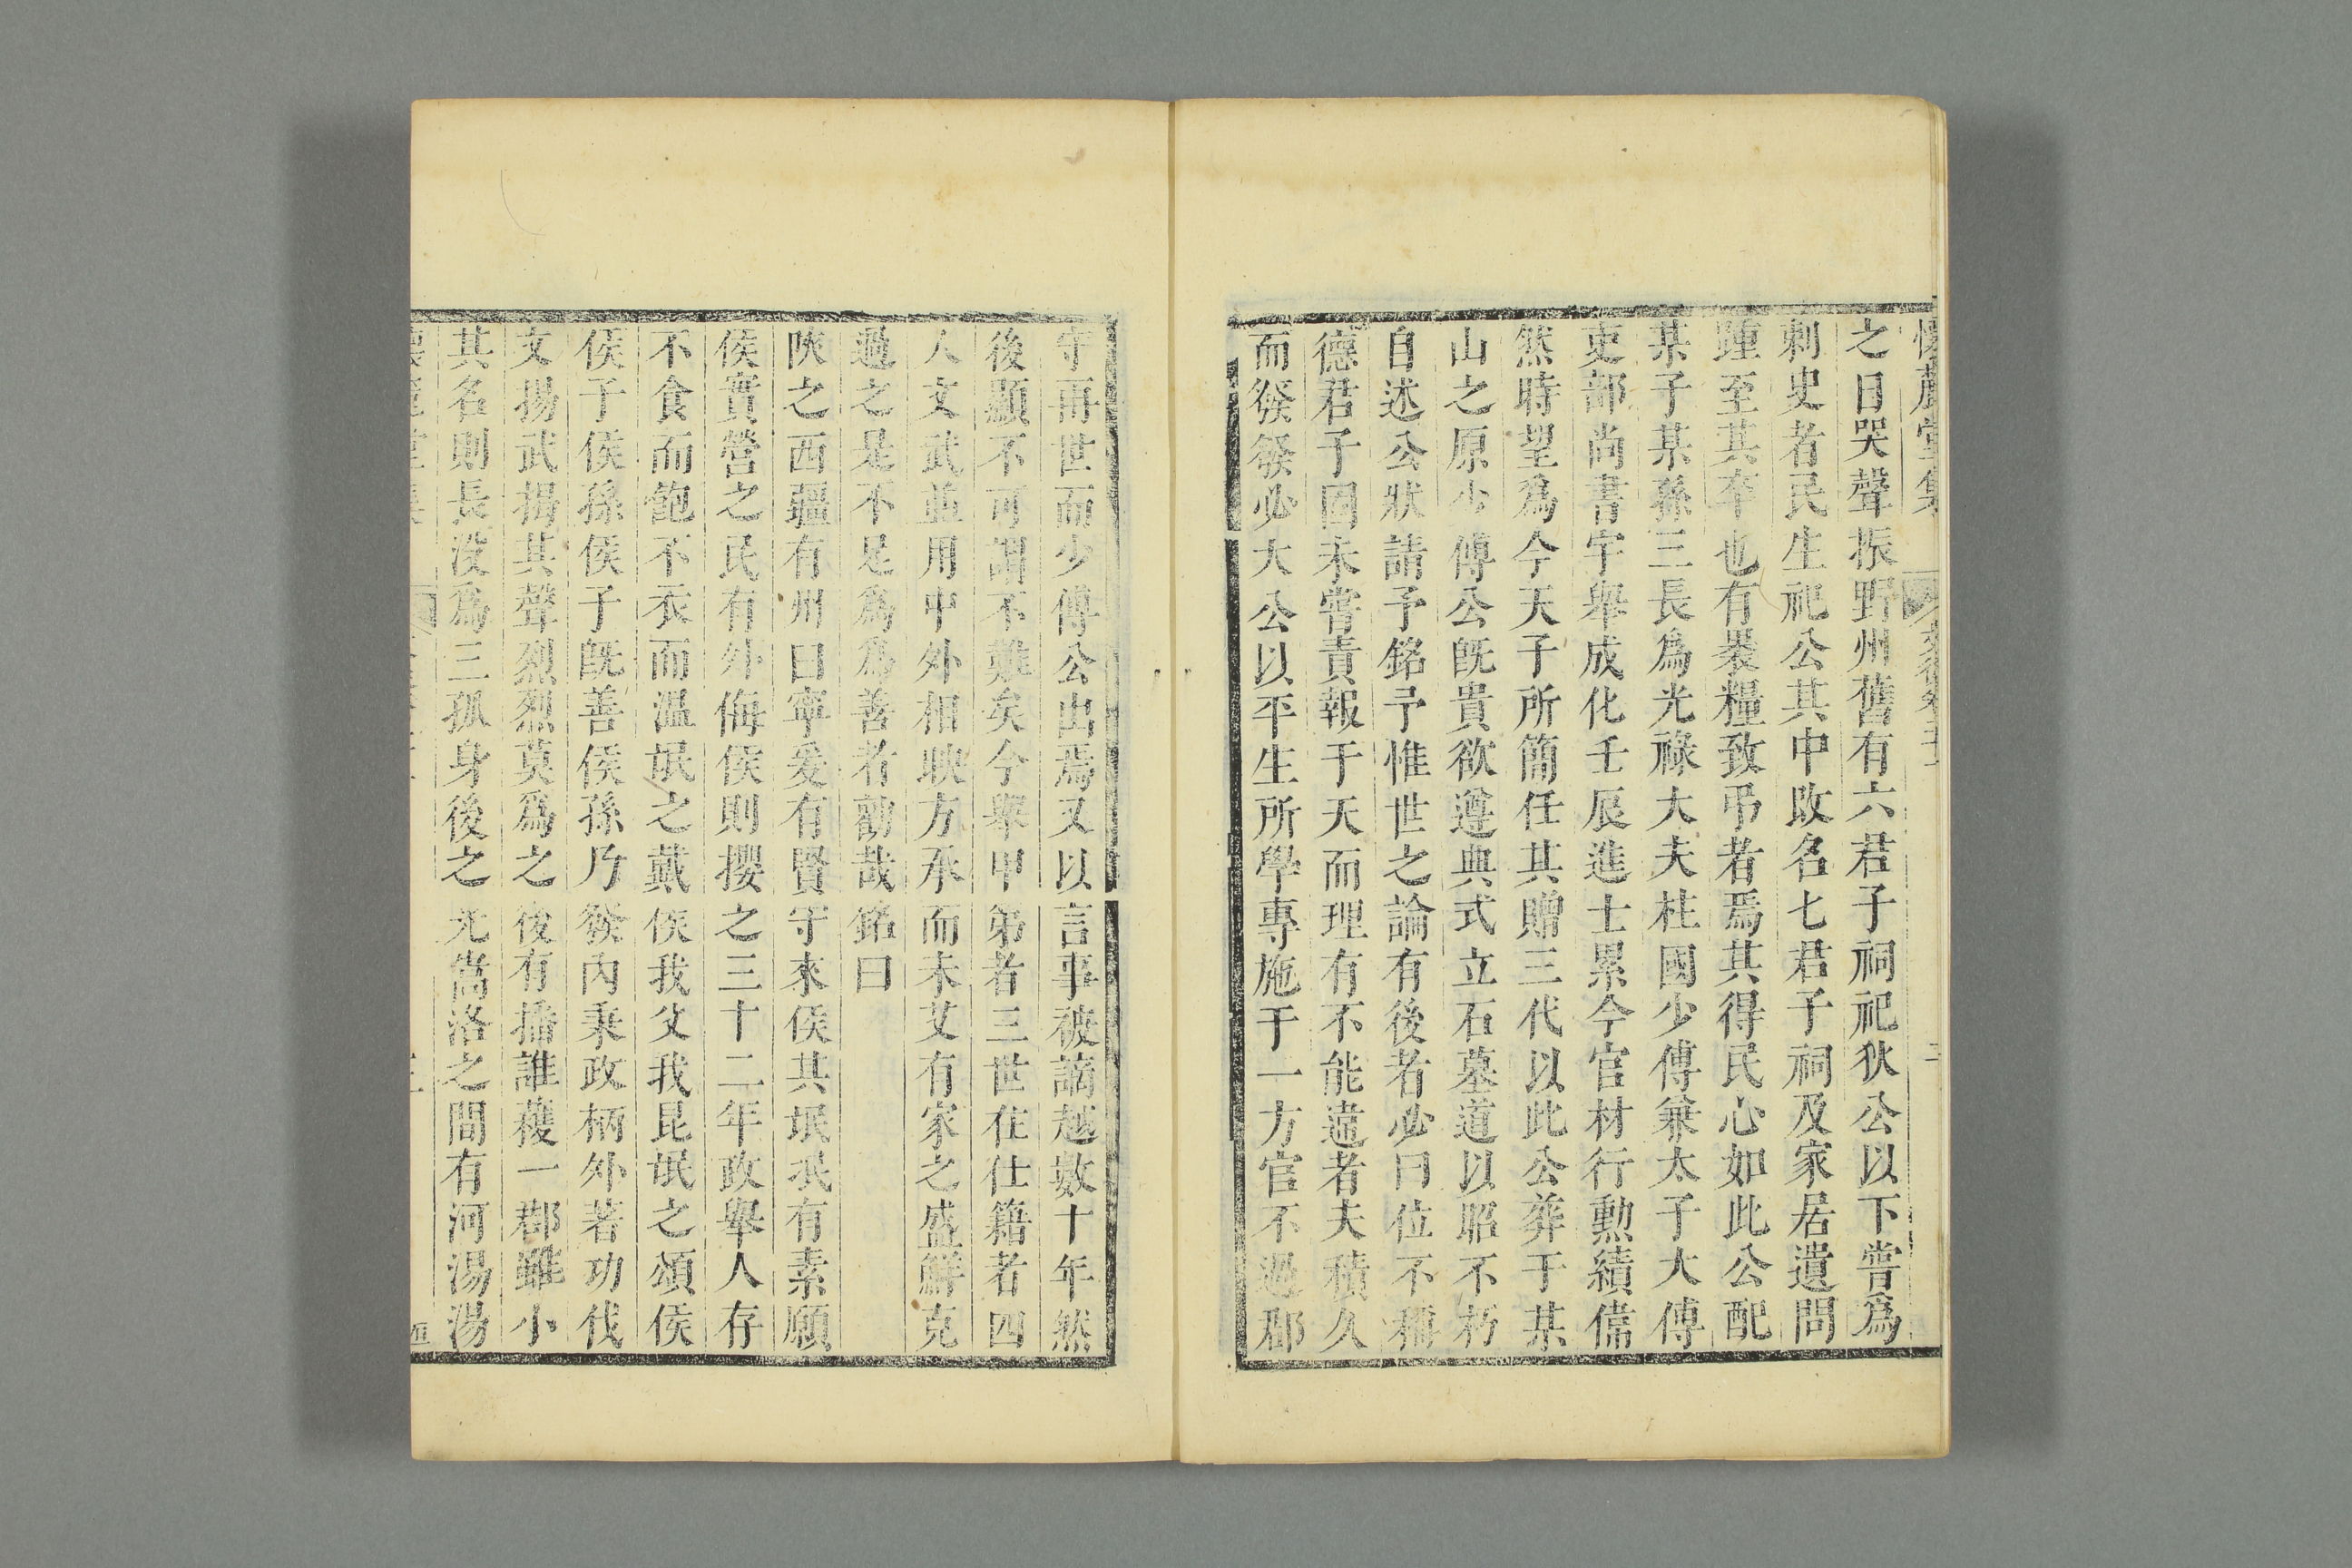 懷麓堂集 文後卷二十 二
之日哭聲振野州舊有六君子祠祀狄公以下嘗爲
刺史者民生祀公其中改名七君子祠及家居遺問
踵至其卒也有裹糧致弔者焉其得民心如此公配
某子某孫三長爲光祿大夫柱國少傅兼太子太傅
吏部尚書宇舉成化壬辰進士累今官材行勲績偉
然時望爲今天子所簡任其贈三代以此公葬于某
山之原少傅公旣貴欲遵典式立石墓道以昭不朽
自述公狀請予銘予惟世之論有後者必曰位不稱
德君子固未嘗責報于天而理有不能違者夫積久
而發發必大公以平生所學專施于一方官不過郡
守再世而少傅公出焉又以言事被謫越數十年然
後顯不可謂不難矣今舉甲第者三世在仕籍者四
人文武並用中外相映方承而未艾有家之盛鮮克
過之是不足爲爲善者勸哉銘曰
陜之西疆有州曰寧爰有賢守來侯其氓氓有素願
侯實營之民有外侮侯則攖之三十二年政舉人存
不食而飽不衣而溫氓之戴侯我父我昆氓之頌侯
侯子侯孫侯子旣善侯孫乃發內秉政柄外著功伐
文揚武揭其聲烈烈莫爲之後有播誰穫一郡雖小
其名則長沒爲三孤身後之光嵩洛之間有河湯湯